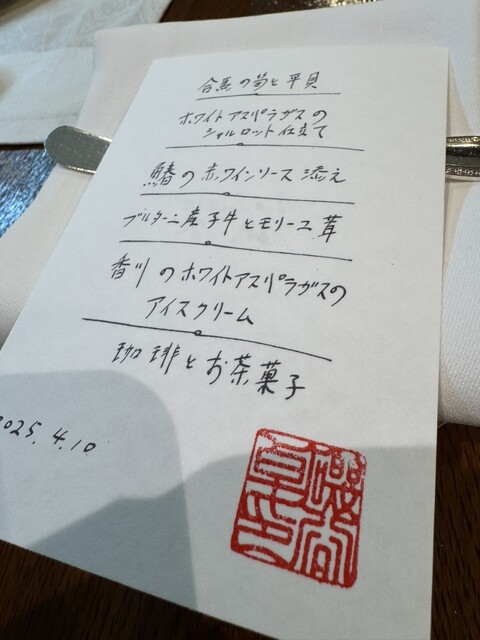 合馬の筍と平貝
ホワイトアスパラガスの
シャルロット仕立て
鰆の赤ワインソース添え
ブルターニュ産子牛とモリーユ茸
香川のホワイトアスパラガスの
アイスクリーム
珈琲とお茶菓子
2025.4.10